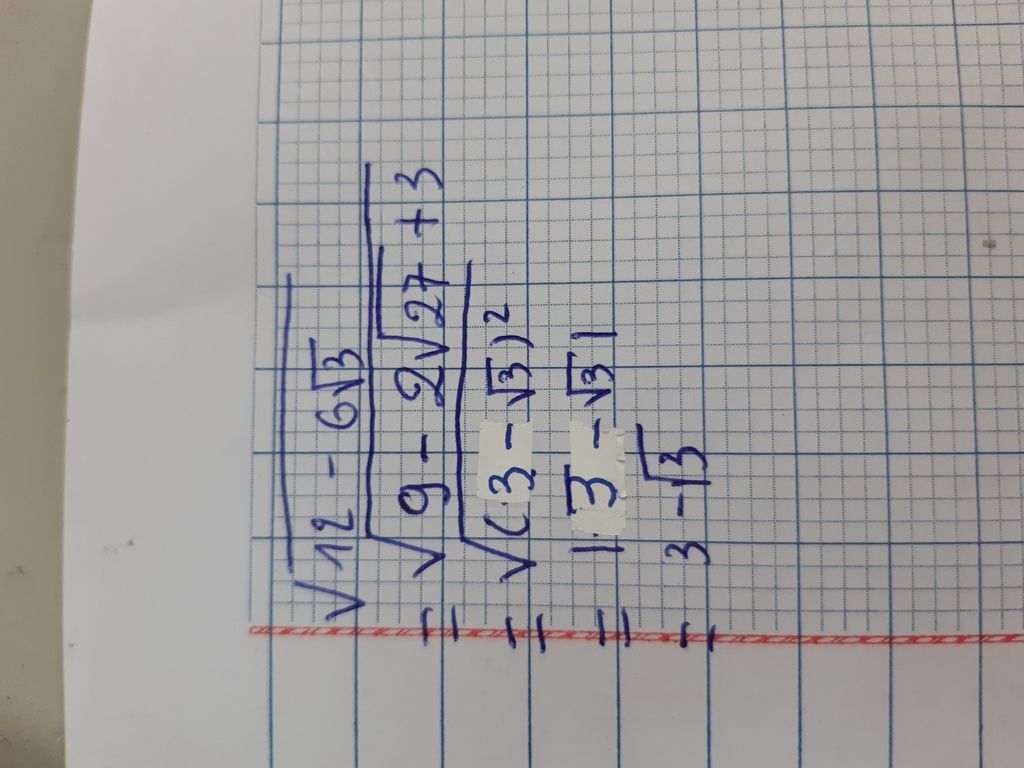 √12 - 6√3
= √9 - 2√27 + 3
= √(3 - √3)²
= |3 - √3|
= 3 - √3